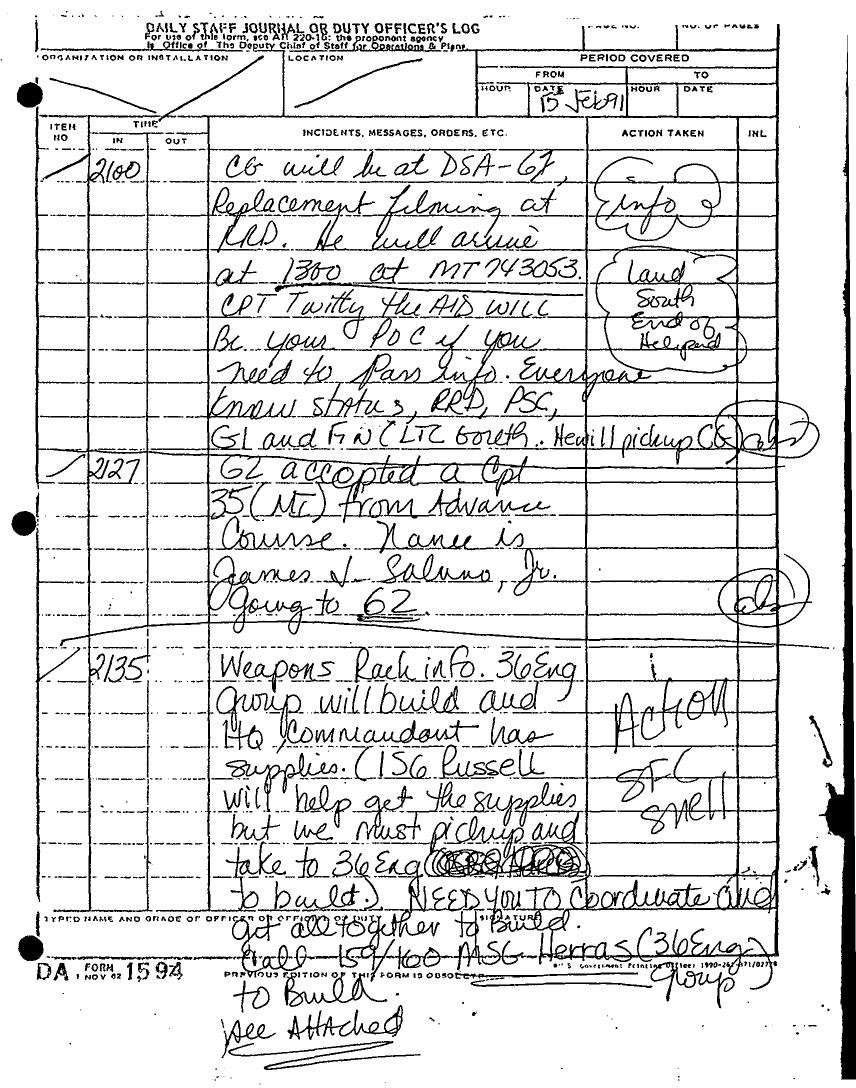 DAILY STAFF JOURNAL OR DUTY OFFICER'S LOG
PAGE NO.
NO. OF PAGES
For use of this form, see AR 220-15; the proponent agency
is Office of The Deputy Chief of Staff for Operations & Plans.
ORGANIZATION OR INSTALLATION
LOCATION
PERIOD COVERED
FROM
TO
HOUR
DATE
HOUR
DATE
15 Feb 91
ITEM NO
TIME
IN
OUT
INCIDENTS, MESSAGES, ORDERS, ETC.
ACTION TAKEN
INL
2100
CG will be at DSA-62,
Replacement filming at
RRD. He will arrive
at 1300 at MT 743053.
CPT Twitty the AID WILL
Be your POC if you
need to Pass info. Everyone
know status, RRD, PSC,
G1 and FIN (LTC Goreth. He will pickup CG)
info
land
South
End of
Helipad
2127
G2 accepted a Cpt
35 (MI) from Advance
Course. Name is
James J. Saluno, Jr.
Going to G2.
2135
Weapons Rack info. 36 Eng
Group will build and
HQ Commandant has
supplies. (1SG Russell
will help get the supplies
but we must pickup and
take to 36 Eng
to build.) NEED YOU TO Coordinate and
get all together to Build.
Call 159/160 MSG Herras (36 Eng
Group)
to Build.
See Attached
Action
SFC
Snell
TYPED NAME AND GRADE OF OFFICER OR OFFICIAL ON DUTY
SIGNATURE
DA FORM 1 NOV 62 1594
PREVIOUS EDITION OF THIS FORM IS OBSOLETE.